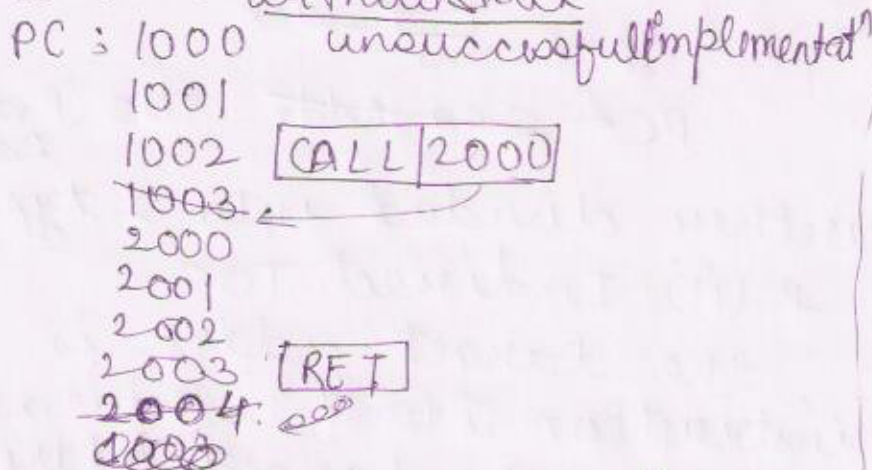 PC : 1000 unsuccessful implementatⁿ
1001
1002 CALL 2000
1003
2000
2001
2002
2003 RET
2004.